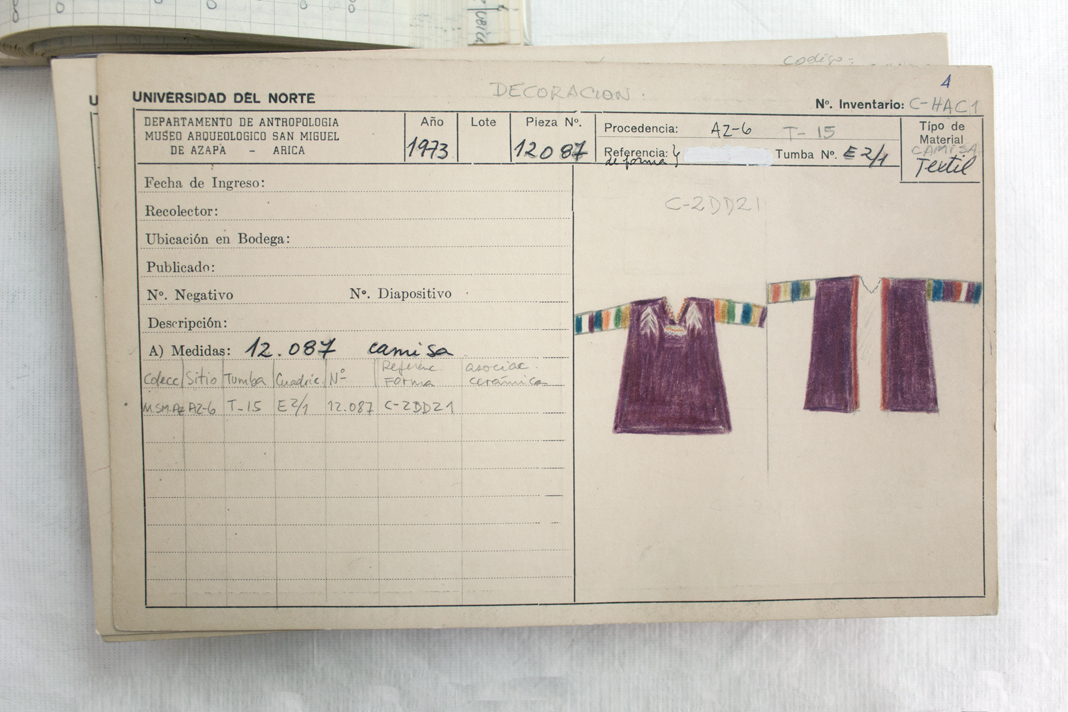 codigo:
DECORACION.
4
UNIVERSIDAD DEL NORTE
Nº. Inventario: C-HAC1
DEPARTAMENTO DE ANTROPOLOGIA
MUSEO ARQUEOLOGICO SAN MIGUEL
DE AZAPA - ARICA
Año
1973
Lote
Pieza Nº.
12087
Procedencia: AZ-6 T-15
Referencia:
de forma
Tumba Nº. E2/1
Tipo de
Material
CAMISA
Textil
Fecha de Ingreso:
Recolector:
Ubicación en Bodega:
Publicado:
Nº. Negativo Nº. Diapositivo
Descripción:
A) Medidas: 12.087 camisa
Colecc Sitio Tumba Cuadric Nº Referenc Forma asociac. cerámicas
M.SM.AZ AZ-6 T-15 E2/1 12.087 C-2DD21
C-2DD21